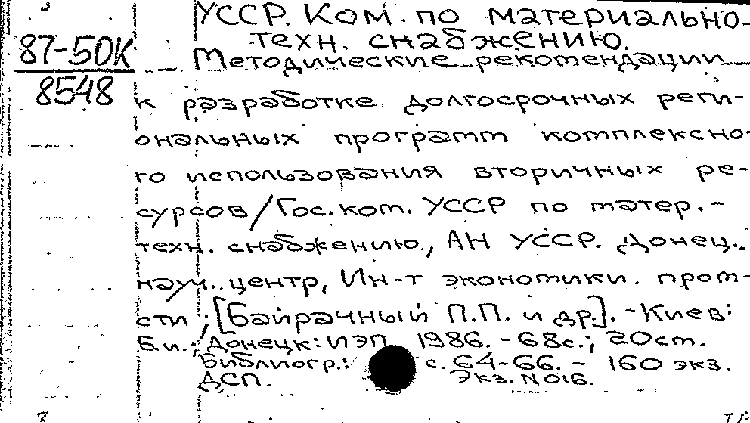 УССР. Ком. по материально-
техн. снабжению.
87-50К
8548
Методические рекомендации
к разработке долгосрочных реги-
ональных программ комплексно-
го использования вторичных ре-
сурсов/Гос. ком. УССР по матер.-
техн. снабжению, АН УССР. Донец.
науч. центр, Ин-т экономики пром-
сти; [Байрачный П.П. и др.]. - Киев:
Б.и.: Донецк: ИЭП, 1986. - 68с.; 20см.
Библиогр.: с. 64-66. - 160 экз.
ДСП. Экз. N016.